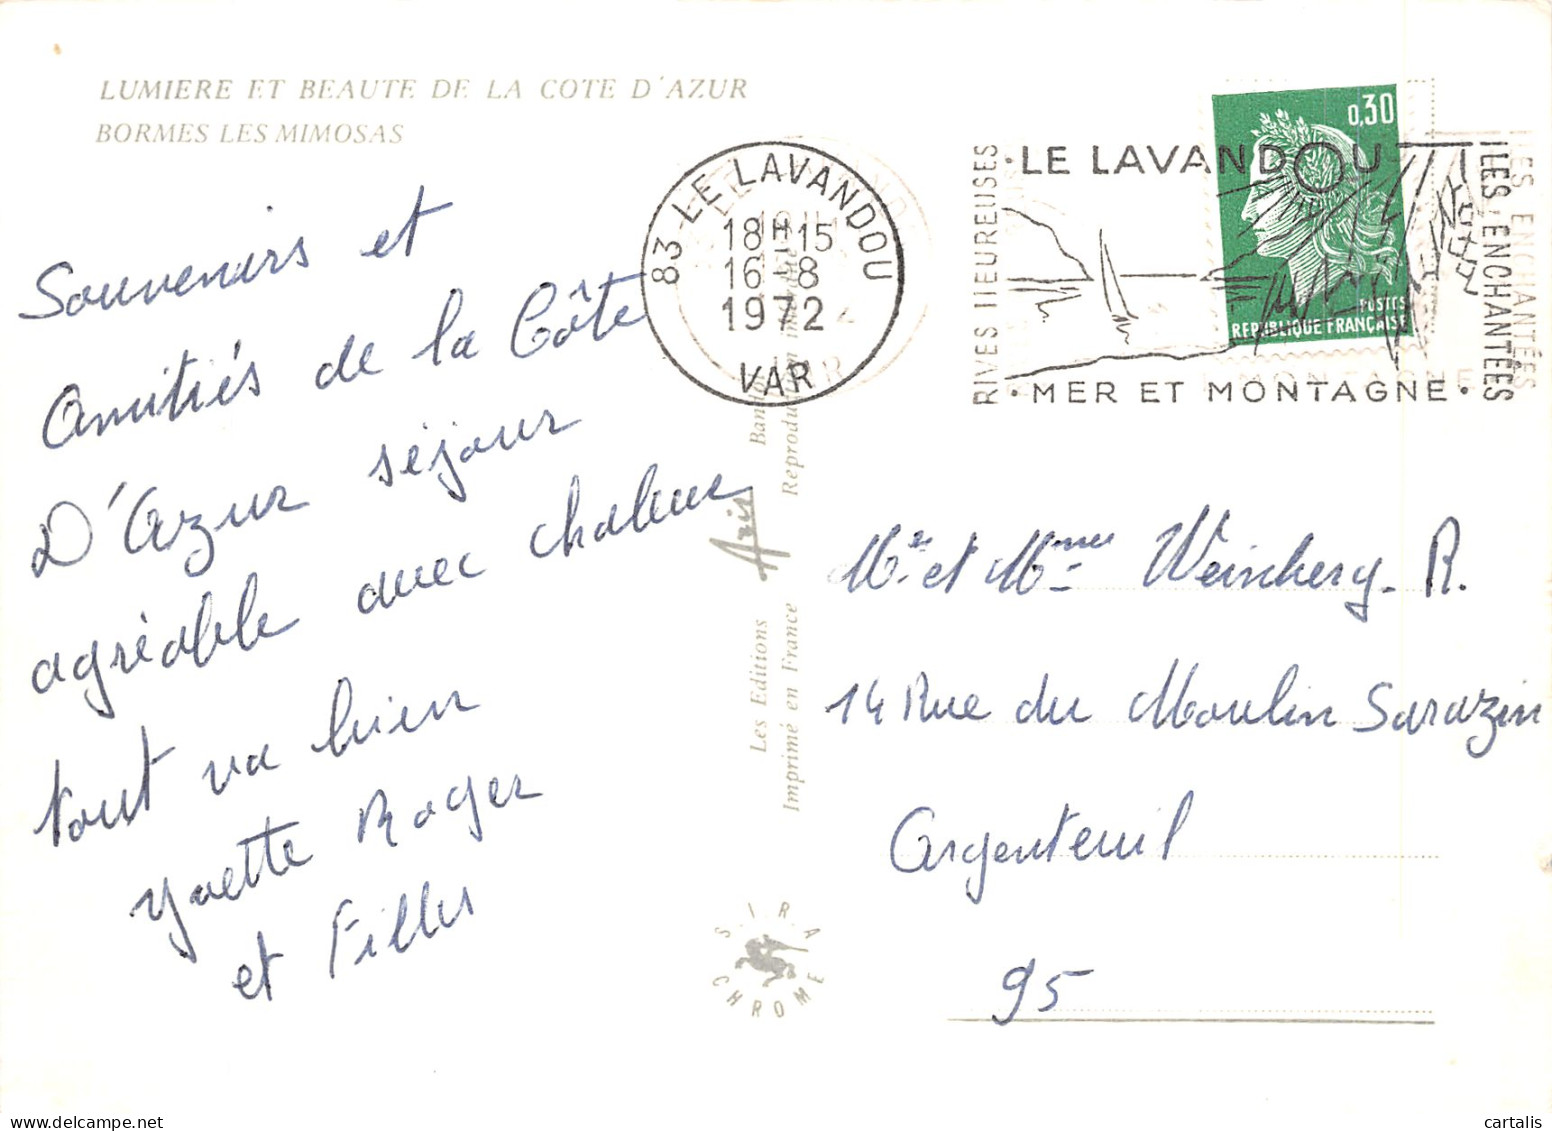 LUMIERE ET BEAUTE DE LA COTE D'AZUR
BORMES LES MIMOSAS
Souvenirs et
Amitiés de la Côte
D'Azur séjour
agréable avec chaleur
tout va bien
Yvette Roger
et Filles
83 LE LAVANDOU
18H15
16-8
1972
VAR
RIVES HEUREUSES
LE LAVANDOU
MER ET MONTAGNE
ILES ENCHANTÉES
0,30
POSTES
REPUBLIQUE FRANÇAISE
Les Editions Aris
Imprimé en France Reproduction
S.I.R.A
CHROME
Mr et Mme Weinberg. R.
14 Rue du Moulin Sarazin
Argenteuil
95
cartalis